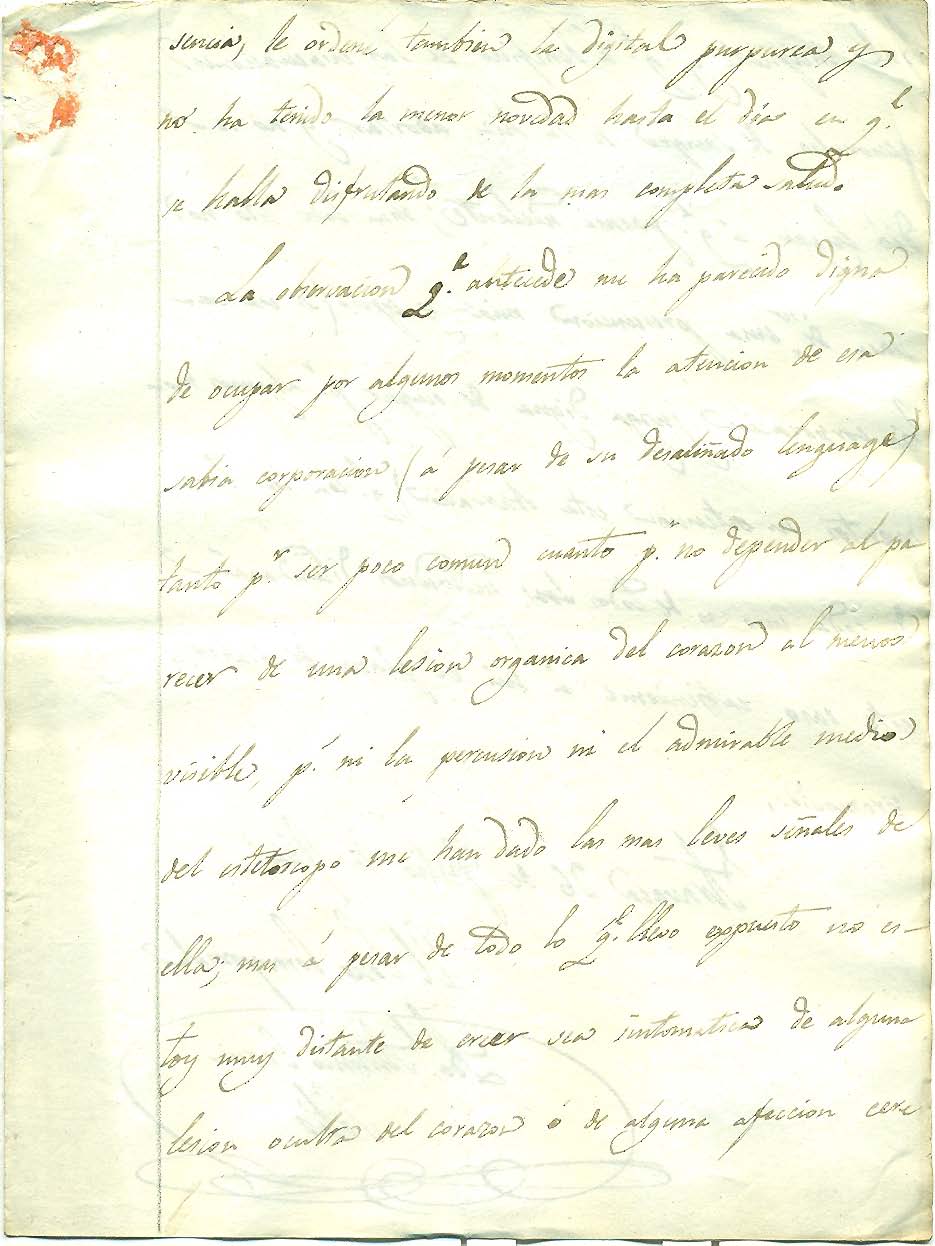 sencia, le ordené tambien la digital purpurea, y
no ha tenido la menor novedad hasta el dia en q.e
se halla disfrutando de la mas completa salud.
La observacion q.e antecede me ha parecido digna
de ocupar por algunos momentos la atencion de esa
sabia corporacion (á pesar de su desaliñado lenguage)
tanto p.r ser poco comun cuanto p.r no depender al pa
recer de una lesion organica del corazon al menos
visible, p.s ni la percusion ni el admirable medio
del estetoscopo me han dado las mas leves señales de
ella; mas á pesar de todo lo q.e llevo expuesto no es-
toy muy distante de creer sea sintomatica de alguna
lesion oculta del corazon ó de alguna afeccion cere